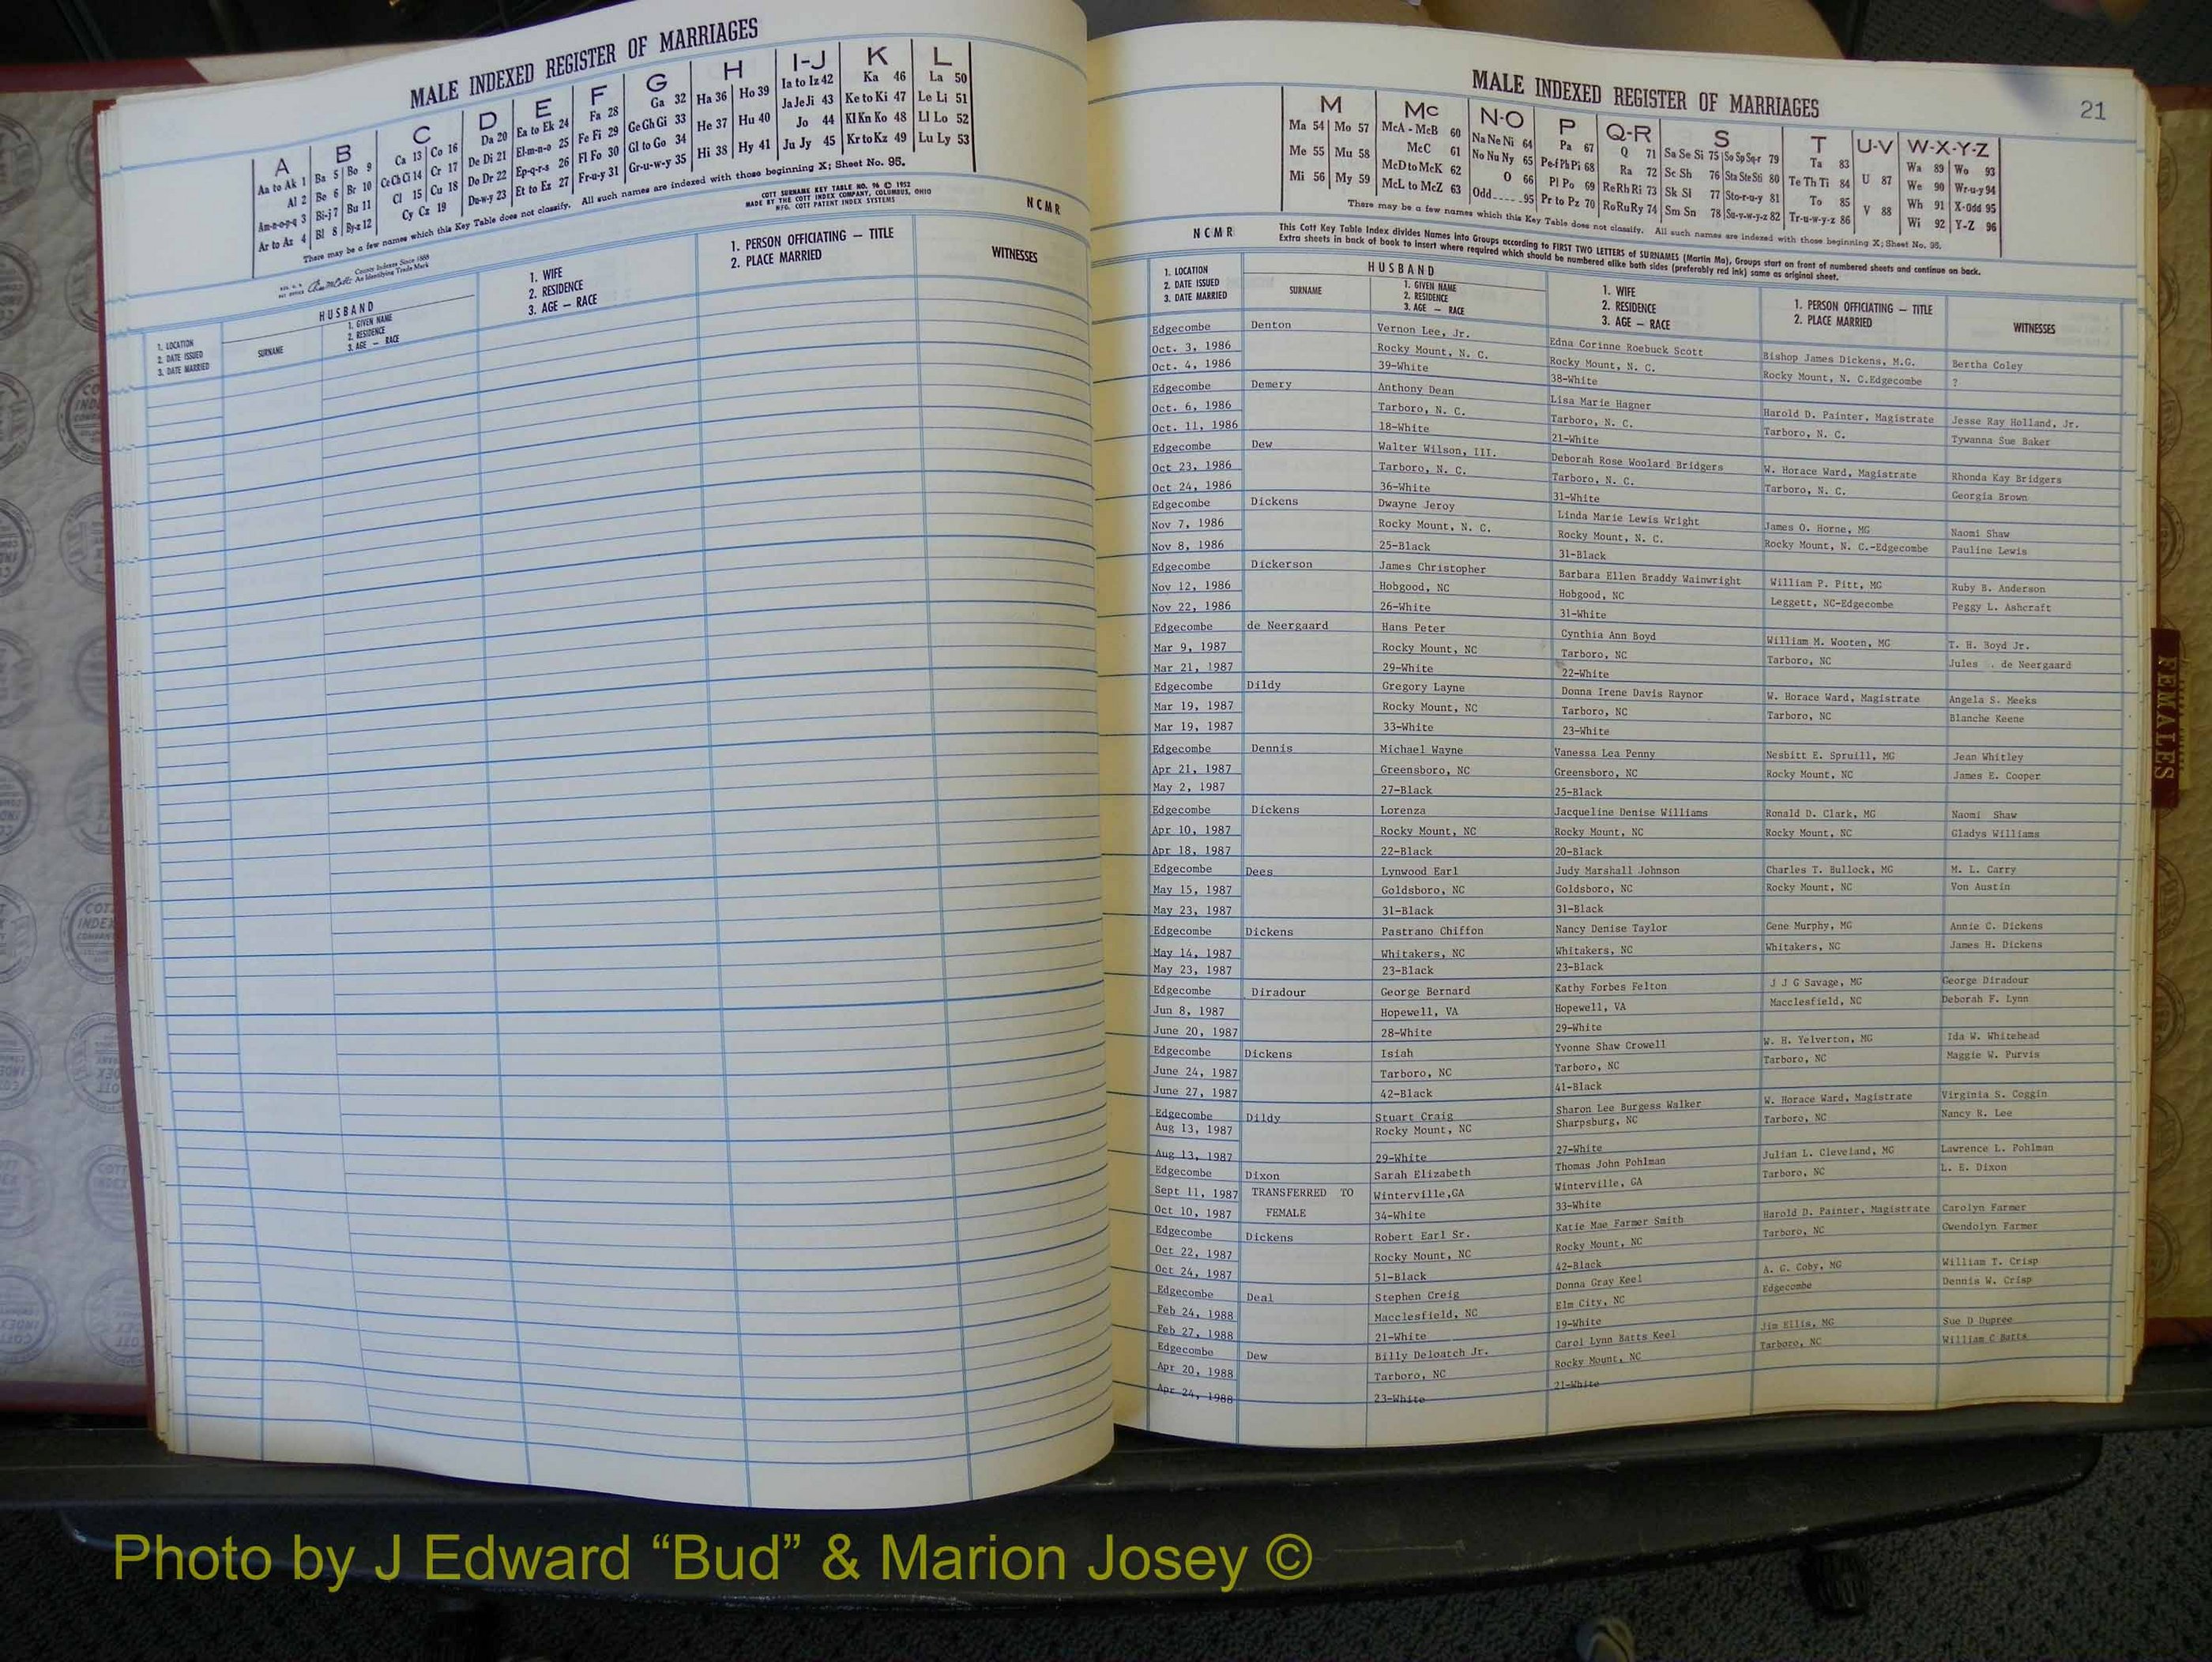 MALE INDEXED REGISTER OF MARRIAGES
A B C D E F G H I-J K L
Aa to Ak 1 Ba 5 Bo 9 Ca 13 Co 16 Da 20 Ea to Ek 24 Fa 28 Ga 32 Ha 36 Ho 39 Ia to Iz 42 Ka 46 La 50
Al 2 Be 6 Br 10 Ce Ch Ci 14 Cr 17 De Di 21 El-m-n-o 25 Fe Fi 29 Ge Gh Gi 33 He 37 Hu 40 Ja Je Ji 43 Ke to Ki 47 Le Li 51
Am-n-o-p-q 3 Bi-j 7 Bu 11 Cl 15 Cu 18 Do Dr 22 Ep-q-r-s 26 Fl Fo 30 Gl to Go 34 Hi 38 Hy 41 Jo 44 Kl Kn Ko 48 Ll Lo 52
Ar to Az 4 Bl 8 By-z 12 Cy Cz 19 Du-w-y 23 Et to Ez 27 Fr-u-y 31 Gr-u-w-y 35 Ju Jy 45 Kr to Kz 49 Lu Ly 53
There may be a few names which this Key Table does not classify. All such names are indexed with those beginning X; Sheet No. 95.
County Indexes Since 1888
An Identifying Trade Mark
COTT SURNAME KEY TABLE NO. 96 © 1952
MADE BY THE COTT INDEX COMPANY, COLUMBUS, OHIO
MFG. COTT PATENT INDEX SYSTEMS
NCMR
1. LOCATION
2. DATE ISSUED
3. DATE MARRIED
HUSBAND
SURNAME
1. GIVEN NAME
2. RESIDENCE
3. AGE — RACE
1. WIFE
2. RESIDENCE
3. AGE — RACE
1. PERSON OFFICIATING — TITLE
2. PLACE MARRIED
WITNESSES
MALE INDEXED REGISTER OF MARRIAGES
21
M Mc N-O P Q-R S T U-V W-X-Y-Z
Ma 54 Mo 57 McA - McB 60 Na Ne Ni 64 Pa 67 Q 71 Sa Se Si 75 So Sp Sq-r 79 Ta 83 U 87 Wa 89 Wo 93
Me 55 Mu 58 McC 61 No Nu Ny 65 Pe-f Ph Pi 68 Ra 72 Sc Sh 76 Sta Ste Sti 80 Te Th Ti 84 V 88 We 90 Wr-u-y 94
Mi 56 My 59 McD to McK 62 O 66 Pl Po 69 Re Rh Ri 73 Sk Sl 77 Sto-r-u-y 81 To 85 Wh 91 X-Odd 95
McL to McZ 63 Odd 95 Pr to Pz 70 Ro Ru Ry 74 Sm Sn 78 Su-v-w-y-z 82 Tr-u-w-y-z 86 Wi 92 Y-Z 96
There may be a few names which this Key Table does not classify. All such names are indexed with those beginning X; Sheet No. 95.
NCMR
This Cott Key Table Index divides Names into Groups according to FIRST TWO LETTERS of SURNAMES (Martin Ma), Groups start on front of numbered sheets and continue on back.
Extra sheets in back of book to insert where required which should be numbered alike both sides (preferably red ink) same as original sheet.
1. LOCATION
2. DATE ISSUED
3. DATE MARRIED
HUSBAND
SURNAME
1. GIVEN NAME
2. RESIDENCE
3. AGE — RACE
1. WIFE
2. RESIDENCE
3. AGE — RACE
1. PERSON OFFICIATING — TITLE
2. PLACE MARRIED
WITNESSES
Edgecombe Denton Vernon Lee, Jr. Edna Corinne Roebuck Scott Bishop James Dickens, M.G. Bertha Coley
Oct. 3, 1986 Rocky Mount, N. C. Rocky Mount, N. C. Rocky Mount, N. C.Edgecombe ?
Oct. 4, 1986 39-White 38-White
Edgecombe Demery Anthony Dean Lisa Marie Hagner Harold D. Painter, Magistrate Jesse Ray Holland, Jr.
Oct. 6, 1986 Tarboro, N. C. Tarboro, N. C. Tarboro, N. C. Tywanna Sue Baker
Oct. 11, 1986 18-White 21-White
Edgecombe Dew Walter Wilson, III. Deborah Rose Woolard Bridgers W. Horace Ward, Magistrate Rhonda Kay Bridgers
Oct 23, 1986 Tarboro, N. C. Tarboro, N. C. Tarboro, N. C. Georgia Brown
Oct 24, 1986 36-White 31-White
Edgecombe Dickens Dwayne Jeroy Linda Marie Lewis Wright James O. Horne, MG Naomi Shaw
Nov 7, 1986 Rocky Mount, N. C. Rocky Mount, N. C. Rocky Mount, N. C.-Edgecombe Pauline Lewis
Nov 8, 1986 25-Black 31-Black
Edgecombe Dickerson James Christopher Barbara Ellen Braddy Wainwright William P. Pitt, MG Ruby B. Anderson
Nov 12, 1986 Hobgood, NC Hobgood, NC Leggett, NC-Edgecombe Peggy L. Ashcraft
Nov 22, 1986 26-White 31-White
Edgecombe de Neergaard Hans Peter Cynthia Ann Boyd William M. Wooten, MG T. H. Boyd Jr.
Mar 9, 1987 Rocky Mount, NC Tarboro, NC Tarboro, NC Jules . de Neergaard
Mar 21, 1987 29-White 22-White
Edgecombe Dildy Gregory Layne Donna Irene Davis Raynor W. Horace Ward, Magistrate Angela S. Meeks
Mar 19, 1987 Rocky Mount, NC Tarboro, NC Tarboro, NC Blanche Keene
Mar 19, 1987 33-White 23-White
Edgecombe Dennis Michael Wayne Vanessa Lea Penny Nesbitt E. Spruill, MG Jean Whitley
Apr 21, 1987 Greensboro, NC Greensboro, NC Rocky Mount, NC James E. Cooper
May 2, 1987 27-Black 25-Black
Edgecombe Dickens Lorenza Jacqueline Denise Williams Ronald D. Clark, MG Naomi Shaw
Apr 10, 1987 Rocky Mount, NC Rocky Mount, NC Rocky Mount, NC Gladys Williams
Apr 18, 1987 22-Black 20-Black
Edgecombe Dees Lynwood Earl Judy Marshall Johnson Charles T. Bullock, MG M. L. Carry
May 15, 1987 Goldsboro, NC Goldsboro, NC Rocky Mount, NC Von Austin
May 23, 1987 31-Black 31-Black
Edgecombe Dickens Pastrano Chiffon Nancy Denise Taylor Gene Murphy, MG Annie C. Dickens
May 14, 1987 Whitakers, NC Whitakers, NC Whitakers, NC James H. Dickens
May 23, 1987 23-Black 23-Black
Edgecombe Diradour George Bernard Kathy Forbes Felton J J G Savage, MG George Diradour
Jun 8, 1987 Hopewell, VA Hopewell, VA Macclesfield, NC Deborah F. Lynn
June 20, 1987 28-White 29-White
Edgecombe Dickens Isiah Yvonne Shaw Crowell W. H. Yelverton, MG Ida W. Whitehead
June 24, 1987 Tarboro, NC Tarboro, NC Tarboro, NC Maggie W. Purvis
June 27, 1987 42-Black 41-Black
Edgecombe Dildy Stuart Craig Sharon Lee Burgess Walker W. Horace Ward, Magistrate Virginia S. Coggin
Aug 13, 1987 Rocky Mount, NC Sharpsburg, NC Tarboro, NC Nancy R. Lee
Aug 13, 1987 29-White 27-White
Edgecombe Dixon Sarah Elizabeth Thomas John Pohlman Julian L. Cleveland, MG Lawrence L. Pohlman
Sept 11, 1987 TRANSFERRED TO Winterville,GA Winterville, GA Tarboro, NC L. E. Dixon
Oct 10, 1987 FEMALE 34-White 33-White
Edgecombe Dickens Robert Earl Sr. Katie Mae Farmer Smith Harold D. Painter, Magistrate Carolyn Farmer
Oct 22, 1987 Rocky Mount, NC Rocky Mount, NC Tarboro, NC Gwendolyn Farmer
Oct 24, 1987 51-Black 42-Black
Edgecombe Deal Stephen Creig Donna Gray Keel A. G. Coby, MG William T. Crisp
Feb 24, 1988 Macclesfield, NC Elm City, NC Edgecombe Dennis W. Crisp
Feb 27, 1988 21-White 19-White
Edgecombe Dew Billy Deloatch Jr. Carol Lynn Batts Keel Jim Ellis, MG Sue D Dupree
Apr 20, 1988 Tarboro, NC Rocky Mount, NC Tarboro, NC William C Batts
Apr 24, 1988 23-White 21-White
FEMALES
Photo by J Edward “Bud” & Marion Josey ©